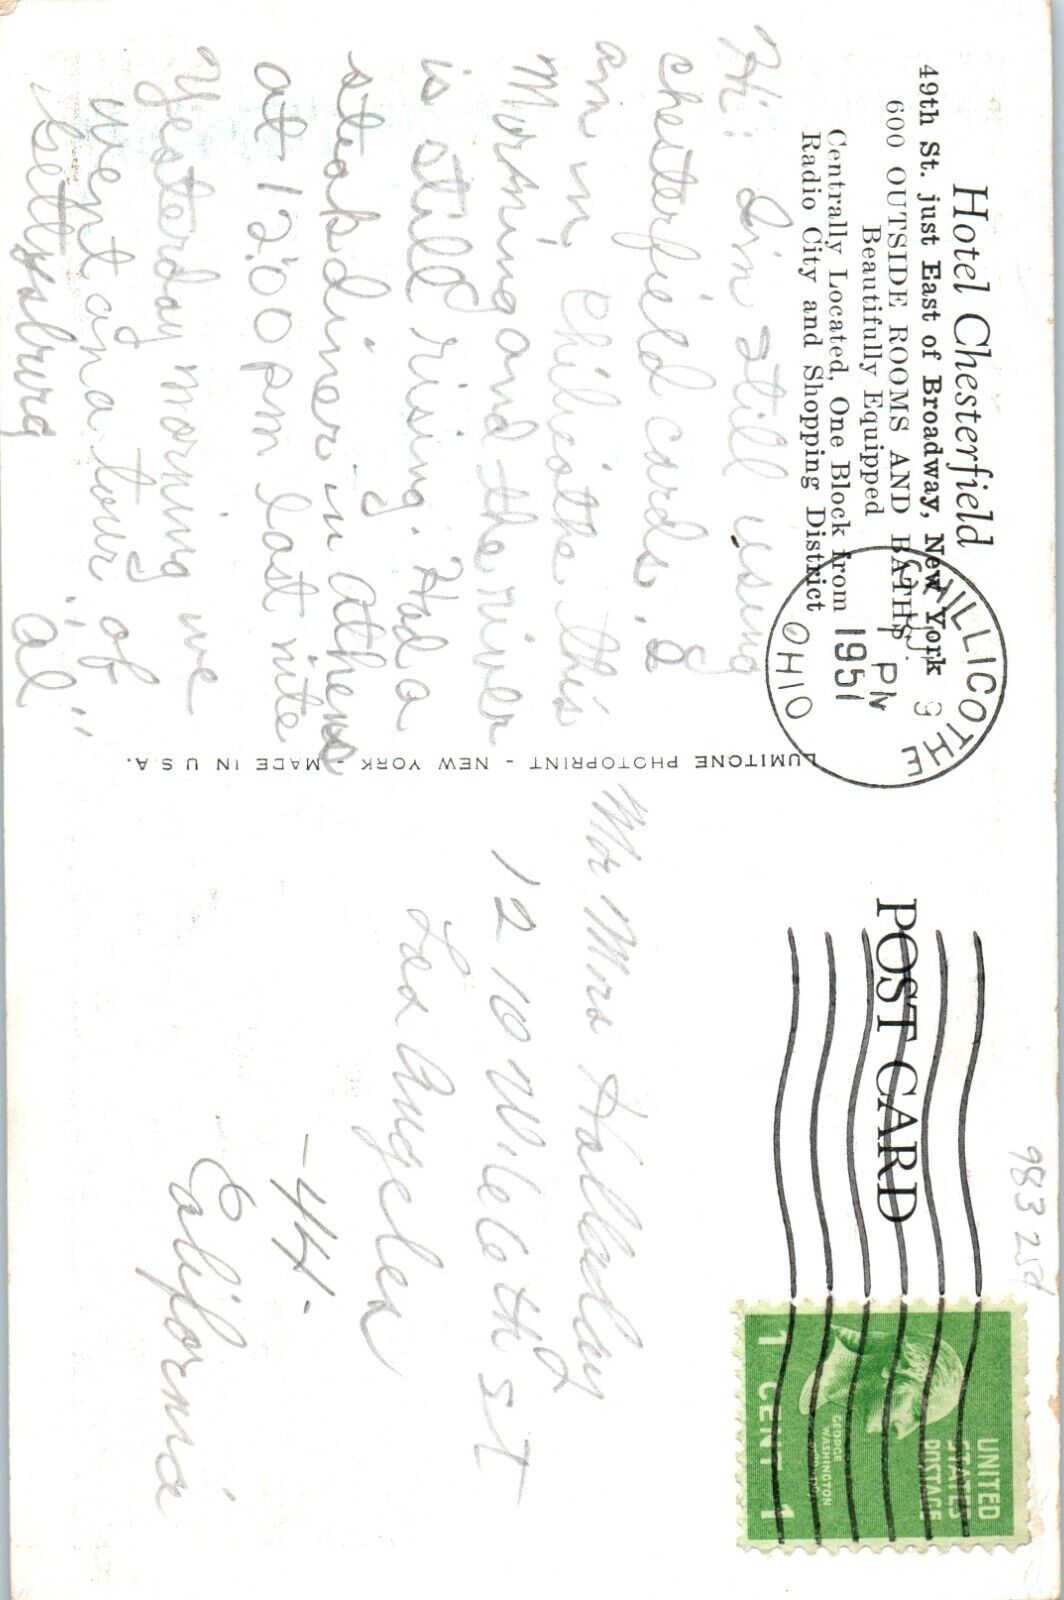 Hotel Chesterfield
49th St. just East of Broadway, New York
600 OUTSIDE ROOMS AND BATHS.
Beautifully Equipped
Centrally Located, One Block from
Radio City and Shopping District
Hi: I'm still using
chesterfield cards. I
am in Chilicothe this
Morning and the river
is still rising. Had a
steak diner in Athens
at 12:00 pm last nite
Yesterday morning we
went on a tour of
Gettysburg
"Al"
LUMITONE PHOTOPRINT - NEW YORK - MADE IN U.S.A.
POST CARD
CHILLICOTHE
9
PM
1951
OHIO
UNITED
STATES
POSTAGE
GEORGE
WASHINGTON
1 CENT 1
983 25¢
Mr Mrs Holladay
1210 W 126th St
Los Angeles
-44-
California